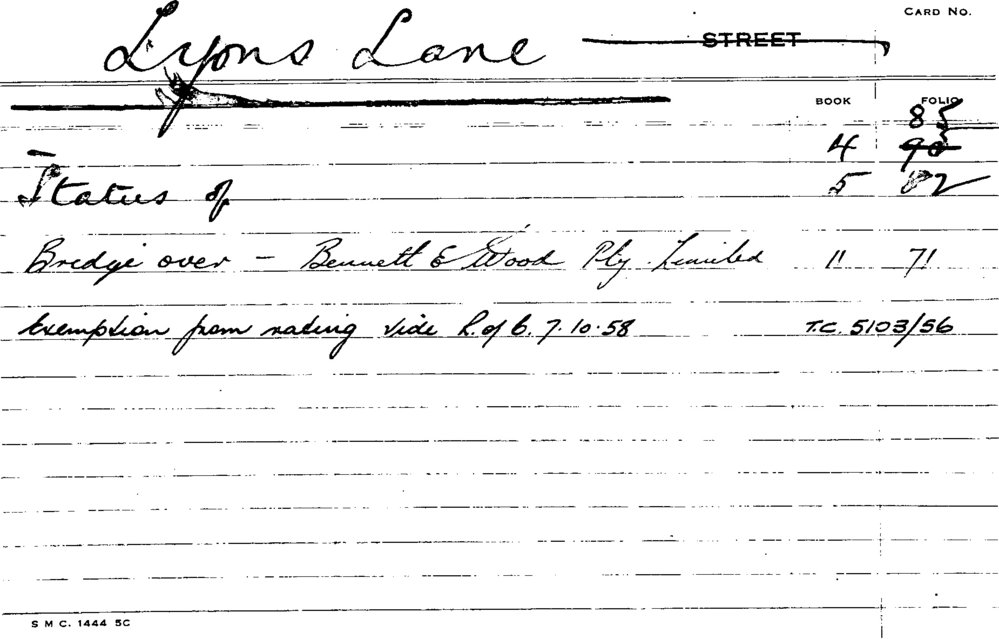 CARD No.
Lyons Lane STREET
BOOK FOLIO
85
4 90
Status of 5 82
Bridge over - Bennett & Wood Pty. Limited 11 71
Exemption from rating vide R. of C. 7.10.58 T.C. 5103/56
S M C. 1444 5C